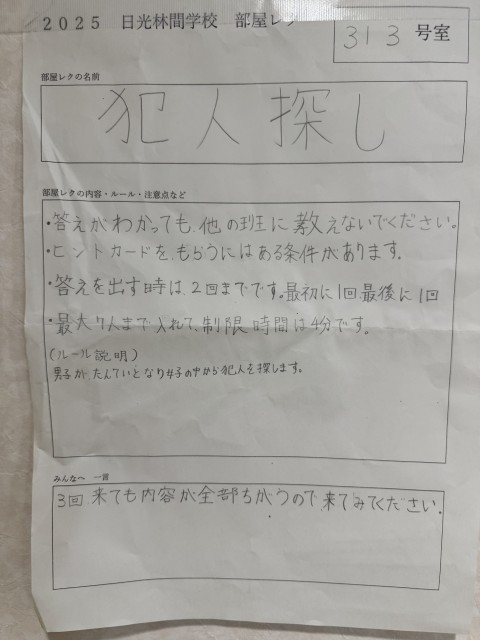 2025 日光林間学校 部屋レク
313号室
部屋レクの名前
犯人探し
部屋レクの内容・ルール・注意点など
・答えがわかっても、他の班に教えないでください。
・ヒントカードを、もらうにはある条件があります。
・答えを出す時は、2回までです。最初に1回最後に1回
・最大7人まで入れて、制限時間は4分です。
(ルール説明)
男子が、たんていとなり女子の中から犯人を探します。
みんなへ 一言
3回来ても内容が全部ちがうので来てみてください。